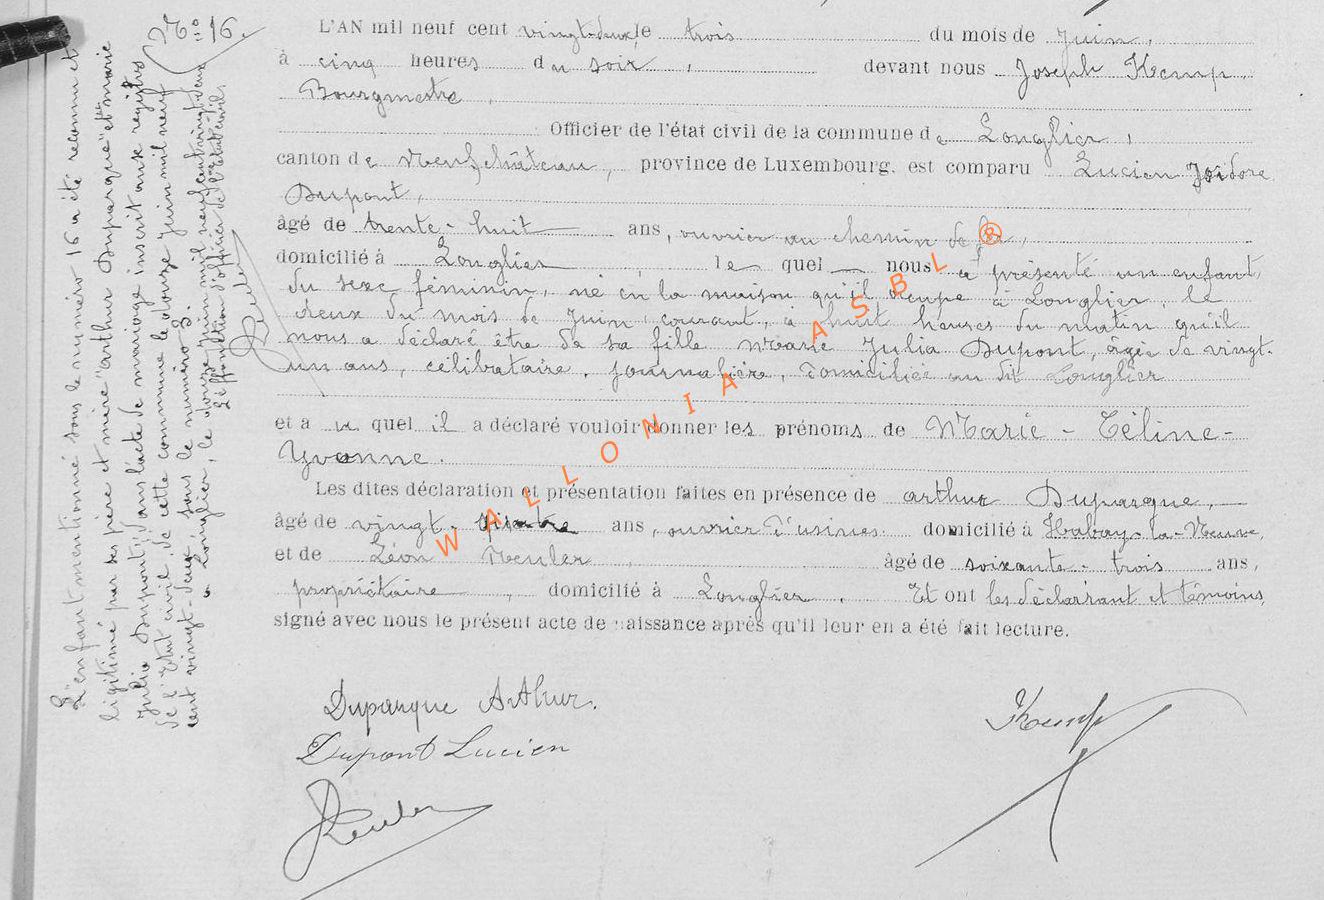 N° 16.
L'AN mil neuf cent vingt-deux, le trois du mois de Juin,
à cinq heures du soir, devant nous Joseph Kemp,
Bourgmestre,
Officier de l'état civil de la commune de Longlier,
canton de Neufchâteau, province de Luxembourg, est comparu Lucien Isidore
Dupont,
âgé de trente-huit ans, ouvrier au chemin de fer,
domicilié à Longlier, lequel nous a présenté un enfant
du sexe féminin, né en la maison qu'il occupe à Longlier, le
deux du mois de Juin courant, à huit heures du matin qu'il
nous a déclaré être de sa fille Marie Julia Dupont, âgée de vingt-
un ans, célibataire, journalière, domiciliée au dit Longlier
et auquel il a déclaré vouloir donner les prénoms de Marie-Céline-
Yvonne.
Les dites déclaration et présentation faites en présence de Arthur Duparque,
âgé de vingt-quatre ans, ouvrier d'usines domicilié à Habay-la-Neuve,
et de Léon Reuler, âgé de soixante-trois ans,
propriétaire, domicilié à Longlier. Et ont les déclarant et témoins,
signé avec nous le présent acte de naissance après qu'il leur en a été fait lecture.
Duparque Arthur.
Dupont Lucien
Reuler
Kemp
L'enfant mentionné sous le numéro 16 a été reconnu et
légitimé par ses père et mère "Arthur Duparque" et "Marie
Julia Dupont" dans l'acte de mariage inscrit aux registres
de l'Etat civil de cette commune le douze Juin mil neuf
cent vingt-deux sous le numéro 3.
à Longlier, le douze Juin mil neuf cent vingt-deux
L'officier de l'état civil
WALLONIA ASBL ®